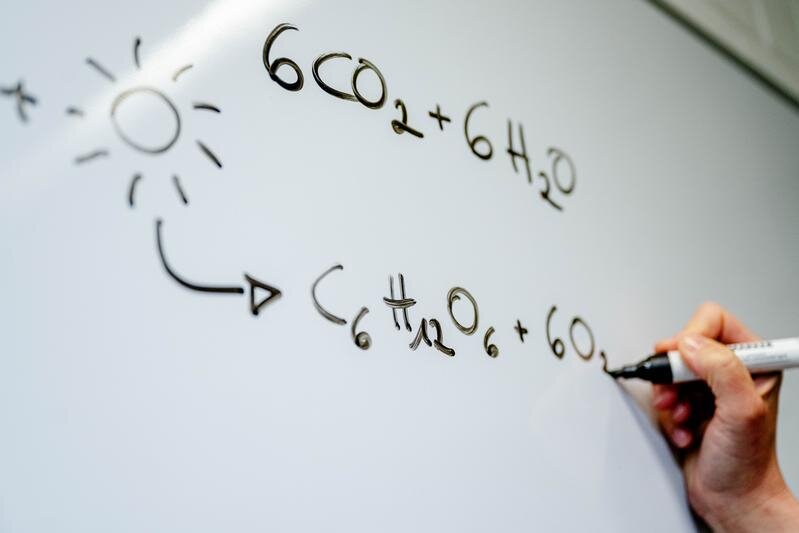 6CO₂ + 6H₂O
C₆H₁₂O₆ + 6O₂